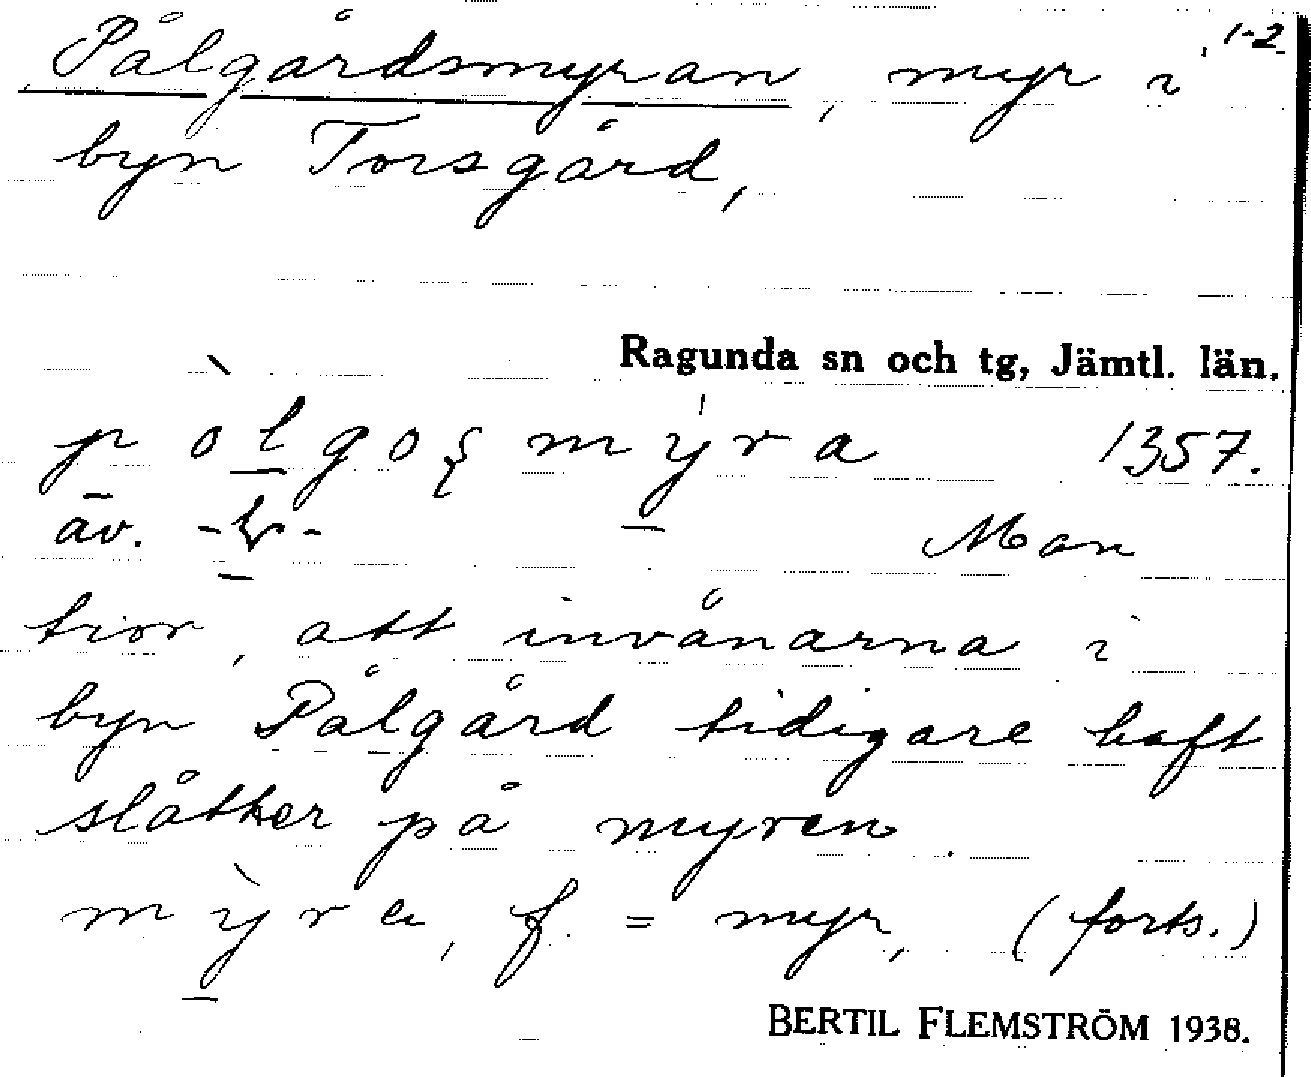 1-2
Pålgårdsmyran, myr i
byn Torsgård,
Ragunda sn och tg, Jämtl. län.
1357.
äv. Man
tror, att invånarna i
byn Pålgård tidigare haft
slåtter på myren.
mỳra, f. = myr, (forts.)
BERTIL FLEMSTRÖM 1938.